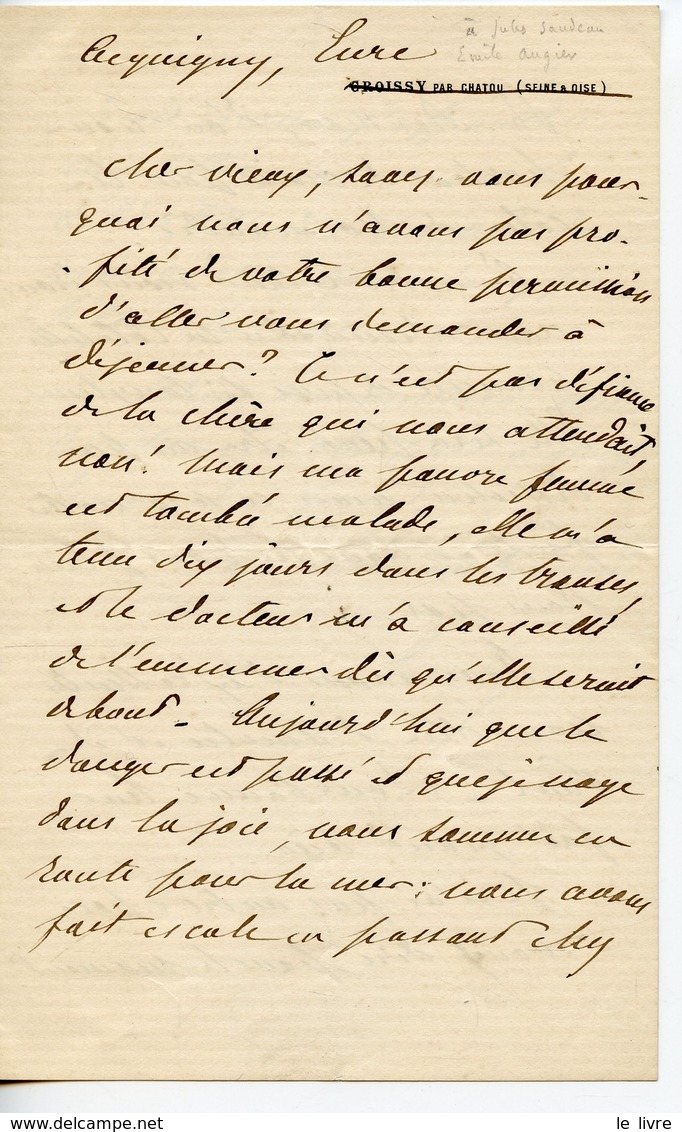 à Jules Sandeau
Emile Augier
Acquigny, Eure
CROISSY PAR CHATOU (SEINE & OISE)
Cher vieux, savez-vous pour-
quoi nous n'avons pas pro-
fité de votre bonne permission
d'aller vous demander à
déjeuner? Ce n'est pas défiance
de la chère qui nous attendait,
non! Mais ma pauvre femme
est tombée malade, elle m'a
tenu dix jours dans les transes,
et le docteur m'a conseillé
de l'emmener dès qu'elle serait
debout. Aujourd'hui que le
danger est passé et que je nage
dans la joie, nous sommes en
route pour la mer; nous avons
fait escale en passant chez
www.delcampe.net
le livre